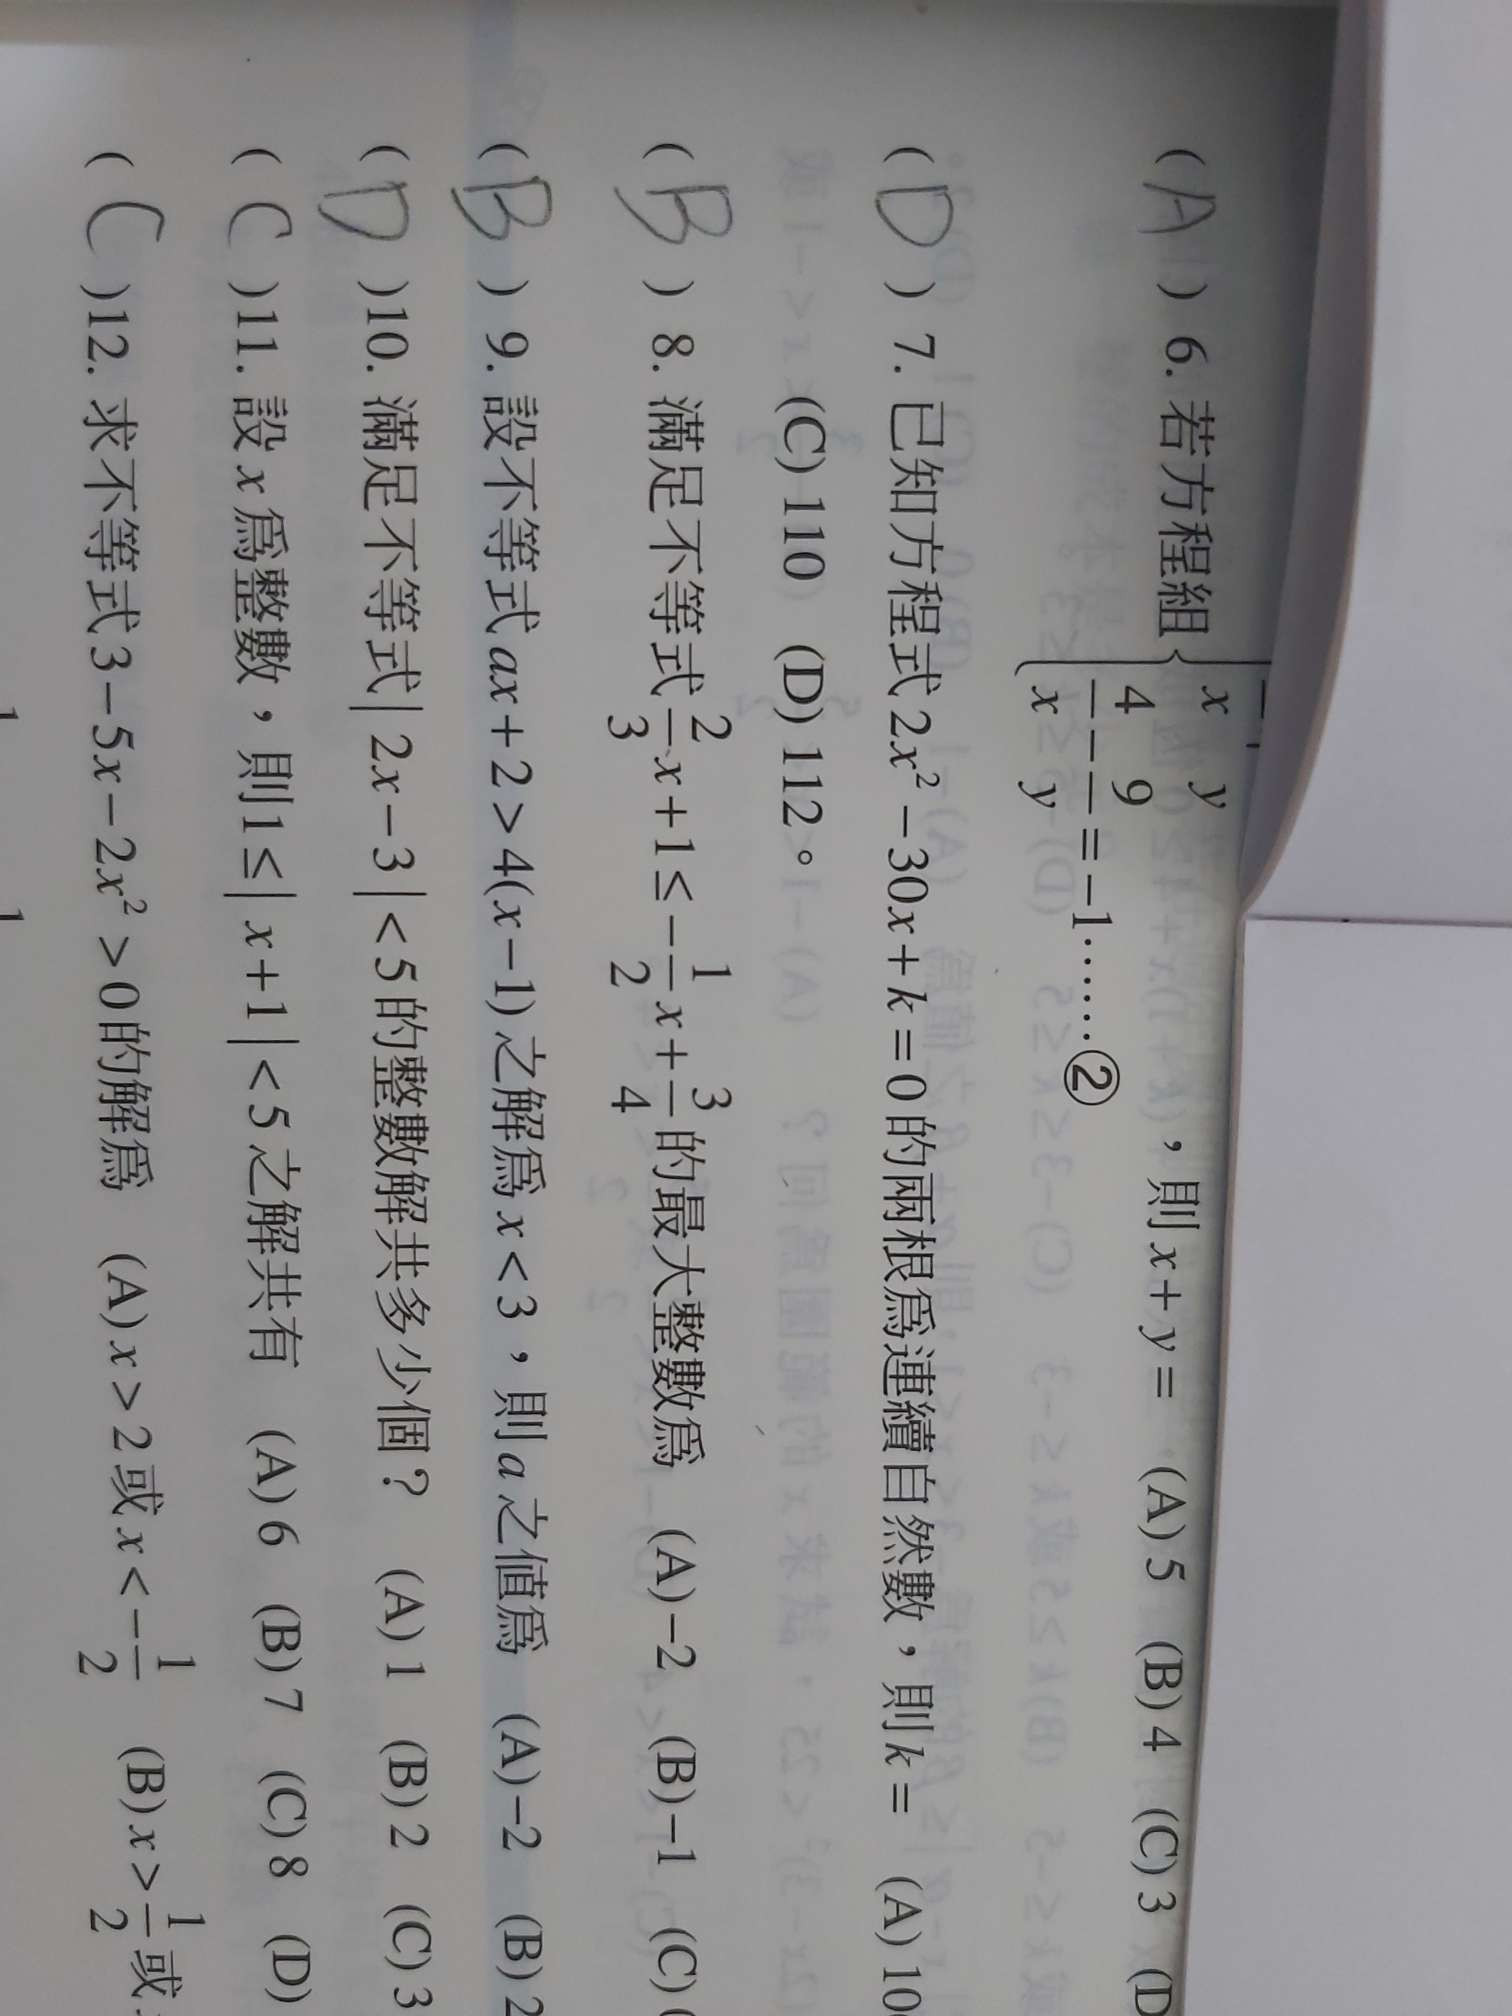 ( A ) 6. 若方程組 { x y
4/x − 9/y = −1……② ，則 x + y = (A) 5 (B) 4 (C) 3 (D
( D ) 7. 已知方程式 2x² − 30x + k = 0 的兩根為連續自然數，則 k = (A) 10
(C) 110 (D) 112。
( B ) 8. 滿足不等式 2/3 x + 1 ≤ − 1/2 x + 3/4 的最大整數為 (A) −2 (B) −1 (C)
( B ) 9. 設不等式 ax + 2 > 4(x − 1) 之解為 x < 3，則 a 之值為 (A) −2 (B) 2
( D )10. 滿足不等式 | 2x − 3 | < 5 的整數解共多少個？ (A) 1 (B) 2 (C) 3
( C )11. 設 x 為整數，則 1 ≤ | x + 1 | < 5 之解共有 (A) 6 (B) 7 (C) 8 (D)
( C )12. 求不等式 3 − 5x − 2x² > 0 的解為 (A) x > 2 或 x < − 1/2 (B) x > 1/2 或
1 1